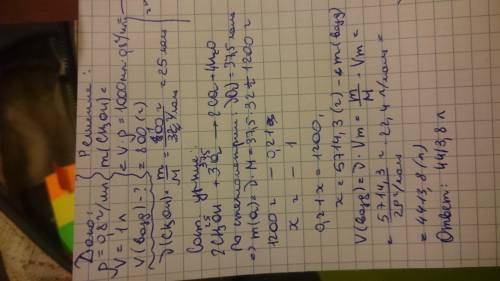 Дано:
ρ = 0,8 г/мл
V = 1 л
V(возд) - ?
Решение:
m(CH3OH) =
= V·ρ = 1000 мл · 0,8 г/мл =
= 800 (г)
ν(CH3OH) = m/M = 800 г / 32 г/моль = 25 моль
Сост. ур-ние:
25 37,5
2CH3OH + 3O2 → 2CO2 + 4H2O
По стехиометрии: ν(O2) = 37,5 моль
=> m(O2) = ν·M = 37,5 · 32 = 1200 г
1200 г - 0,21
x г - 1
0,21x = 1200,
x = 5714,3 (г) - m(возд)
V(возд) = ν · Vm = m/M · Vm =
= 5714,3 г / 29 г/моль · 22,4 л/моль =
= 4413,8 (л)
Ответ: 4413,8 л